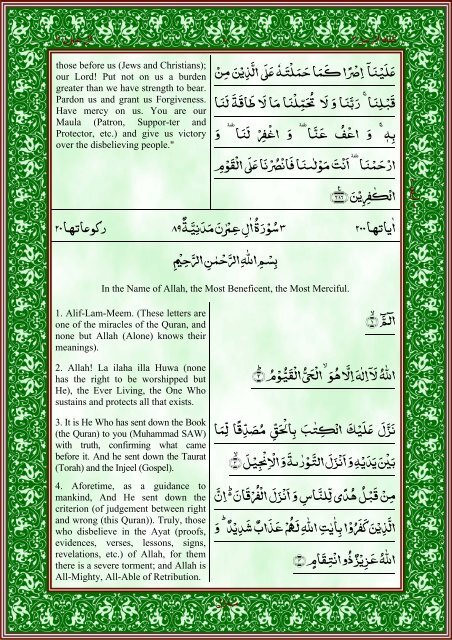 those before us (Jews and Christians);
our Lord! Put not on us a burden
greater than we have strength to bear.
Pardon us and grant us Forgiveness.
Have mercy on us. You are our
Maula (Patron, Suppor-ter and
Protector, etc.) and give us victory
over the disbelieving people."
عَلَيْنَآ اِصْرًا كَمَا حَمَلْتَهٗ عَلَى الَّذِيْنَ مِنْ
قَبْلِنَا ۚ رَبَّنَا وَ لَا تُحَمِّلْنَا مَا لَا طَاقَةَ لَنَا
بِهٖ ۚ وَ اعْفُ عَنَّا ۥ وَ اغْفِرْ لَنَا ۥ وَ
ارْحَمْنَا ۥ اَنْتَ مَوْلٰىنَا فَانْصُرْنَا عَلَى الْقَوْمِ
الْكٰفِرِيْنَ ۲۸۶
اٰیاتھا ۲۰۰ ۳ سُوْرَةُ اٰلِ عِمْرٰنَ مَدَنِيَّةٌ ۸۹ رکوعاتھا ۲۰
بِسْمِ اللّٰهِ الرَّحْمٰنِ الرَّحِيْمِ
In the Name of Allah, the Most Beneficent, the Most Merciful.
1. Alif-Lam-Meem. (These letters are
one of the miracles of the Quran, and
none but Allah (Alone) knows their
meanings).
الٓمّٓ ۱
2. Allah! La ilaha illa Huwa (none
has the right to be worshipped but
He), the Ever Living, the One Who
sustains and protects all that exists.
اللّٰهُ لَآ اِلٰهَ اِلَّا هُوَ ۙ الْحَيُّ الْقَيُّوْمُ ۲
3. It is He Who has sent down the Book
(the Quran) to you (Muhammad SAW)
with truth, confirming what came
before it. And he sent down the Taurat
(Torah) and the Injeel (Gospel).
نَزَّلَ عَلَيْكَ الْكِتٰبَ بِالْحَقِّ مُصَدِّقًا لِّمَا
بَيْنَ يَدَيْهِ وَ اَنْزَلَ التَّوْرٰىةَ وَ الْاِنْجِيْلَ ۳
4. Aforetime, as a guidance to
mankind, And He sent down the
criterion (of judgement between right
and wrong (this Quran)). Truly, those
who disbelieve in the Ayat (proofs,
evidences, verses, lessons, signs,
revelations, etc.) of Allah, for them
there is a severe torment; and Allah is
All-Mighty, All-Able of Retribution.
مِنْ قَبْلُ هُدًى لِّلنَّاسِ وَ اَنْزَلَ الْفُرْقَانَ ؕ اِنَّ
الَّذِيْنَ كَفَرُوْا بِاٰيٰتِ اللّٰهِ لَهُمْ عَذَابٌ شَدِيْدٌ ؕ وَ
اللّٰهُ عَزِيْزٌ ذُو انْتِقَامٍ ۴